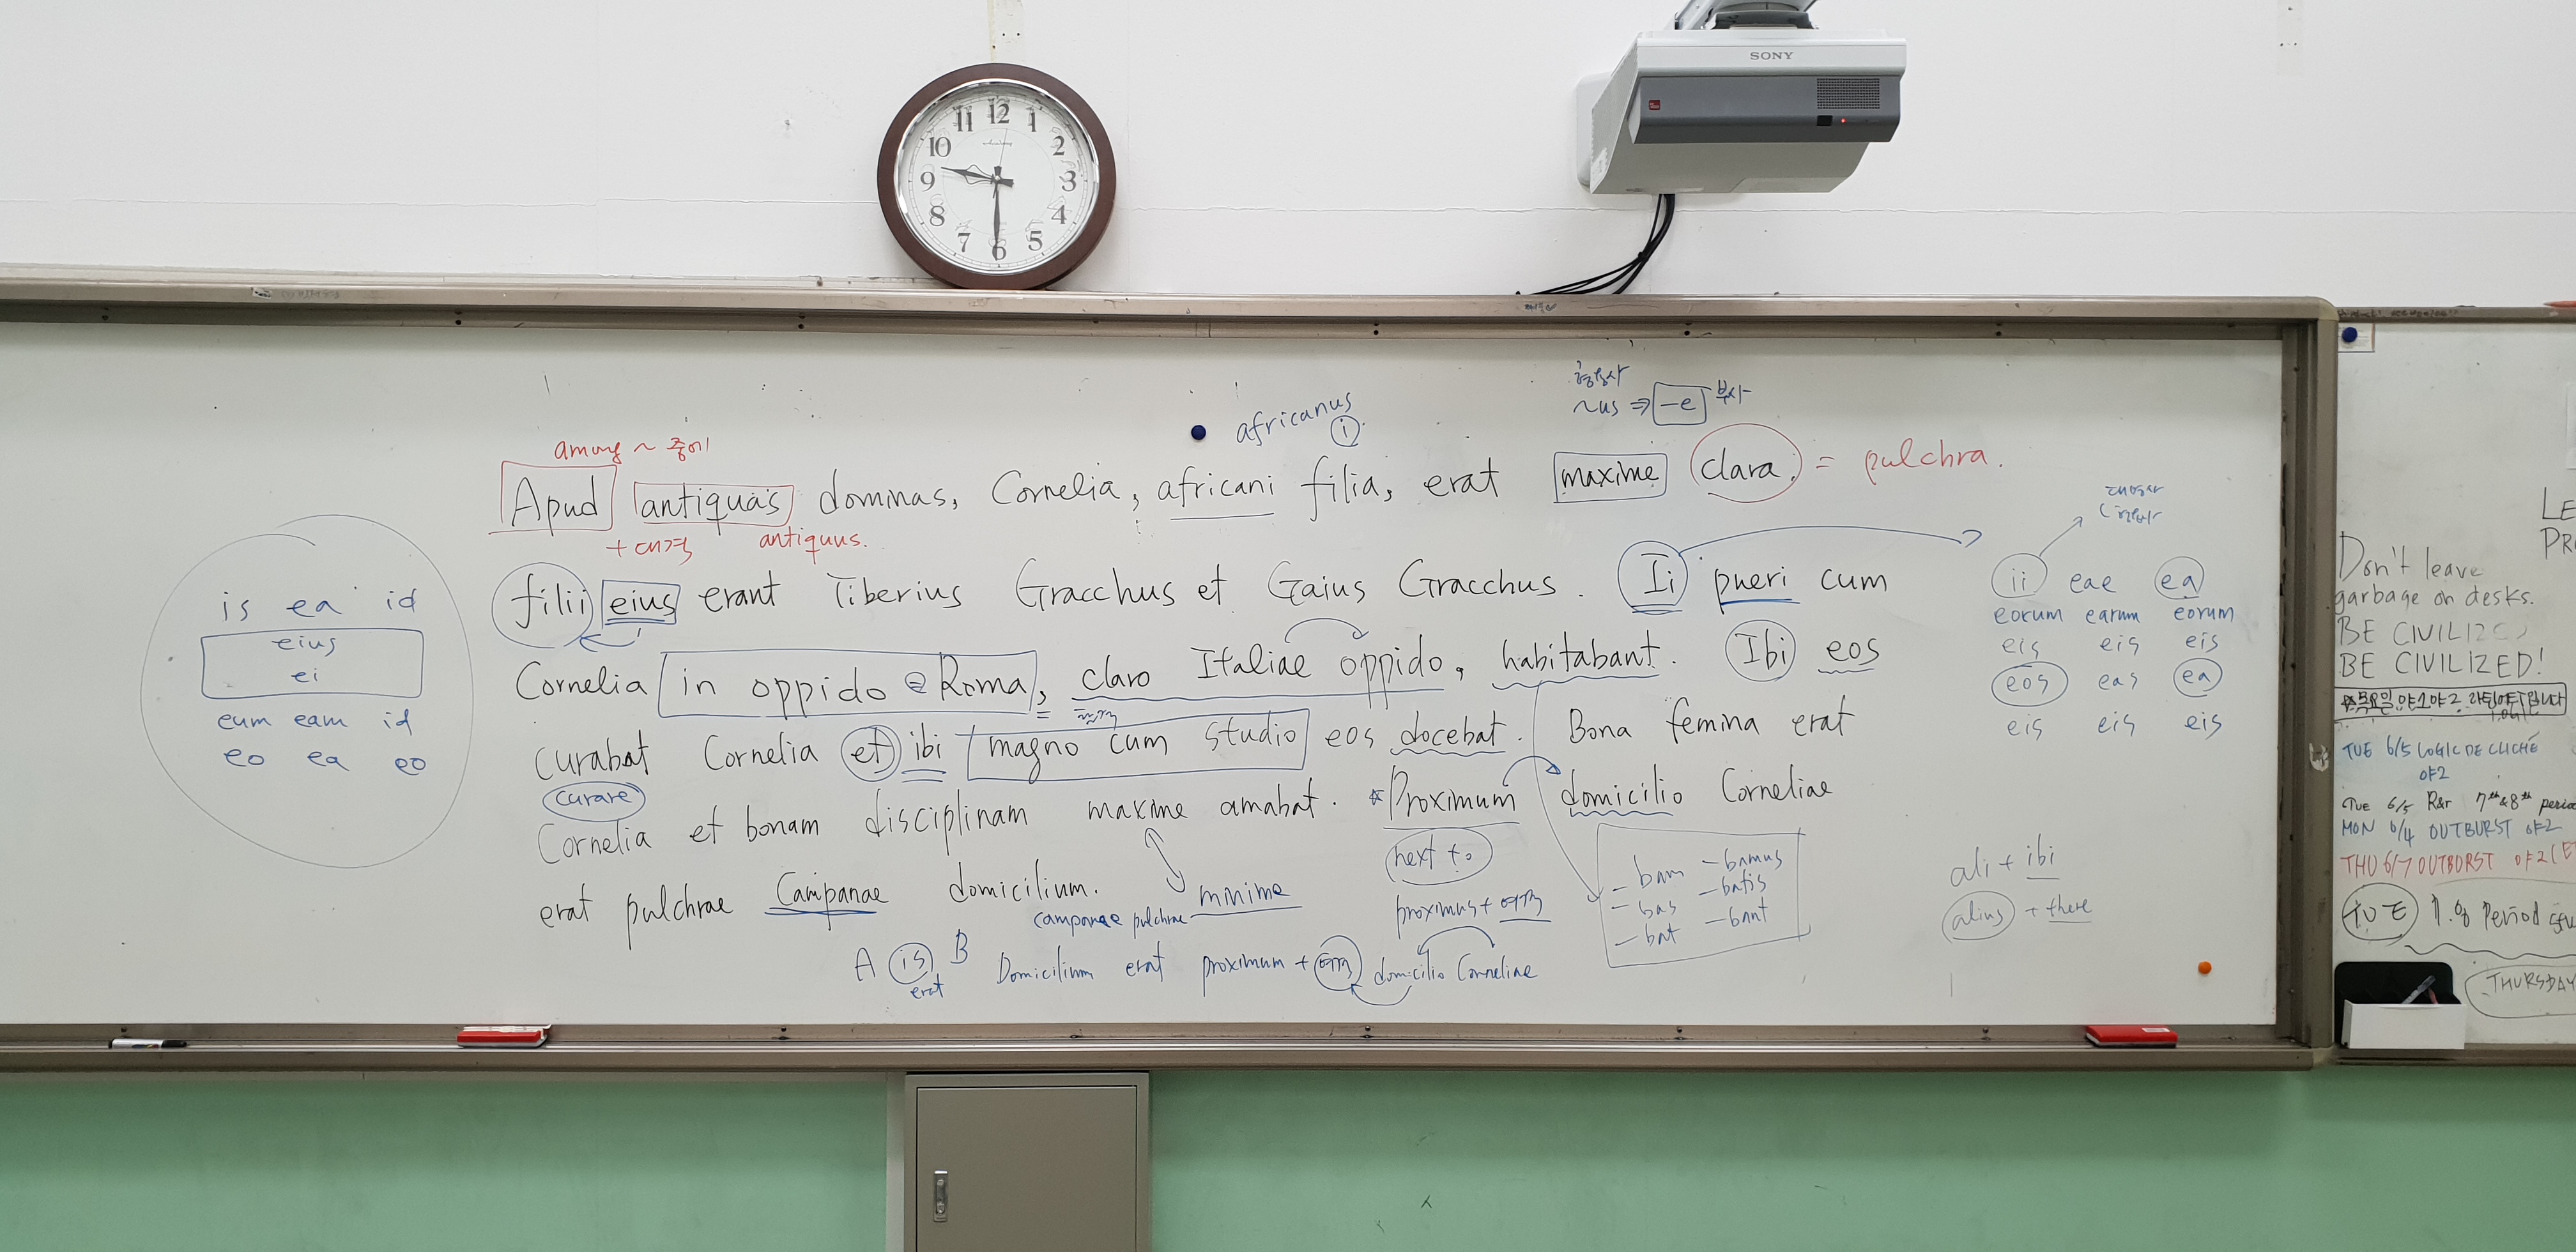 SONY
11 12 1
10 2
9 3
8 4
7 6 5
형용사
~us ⇒ -e 부사
africanus
i
among ~ 중에
Apud antiquas dominas, Cornelia, africani filia, erat maxime clara. = pulchra.
+ 대격 antiquus.
대명사
형용사
filii eius erant Tiberius Gracchus et Gaius Gracchus. Ii pueri cum
Cornelia in oppido Roma, claro Italiae oppido, habitabant. Ibi eos
curabat Cornelia et ibi magno cum studio eos docebat. Bona femina erat
curare
Cornelia et bonam disciplinam maxime amabat. *Proximum domicilio Corneliae
next to
erat pulchrae Campanae domicilium.
minime
campanae pulchrae
proximus + 여격
A is B Domicilium erat proximum + 여격 domicilio Corneliae
erat
is ea id
eius
ei
eum eam id
eo ea eo
ii eae ea
eorum earum eorum
eis eis eis
eos eas ea
eis eis eis
-bam -bamus
-bas -batis
-bat -bant
ali + ibi
alius + there
LE
PR
Don't leave
garbage on desks.
BE CIVILIZ
BE CIVILIZED!
*목요일 야1야2 라틴어
TUE 6/5 LOGIC DE CLICHÉ
야2
TUE 6/5 R&r 7th&8th period
MON 6/4 OUTBURST 야2
THU 6/7 OUTBURST 야2
TUE Period
THURSDAY